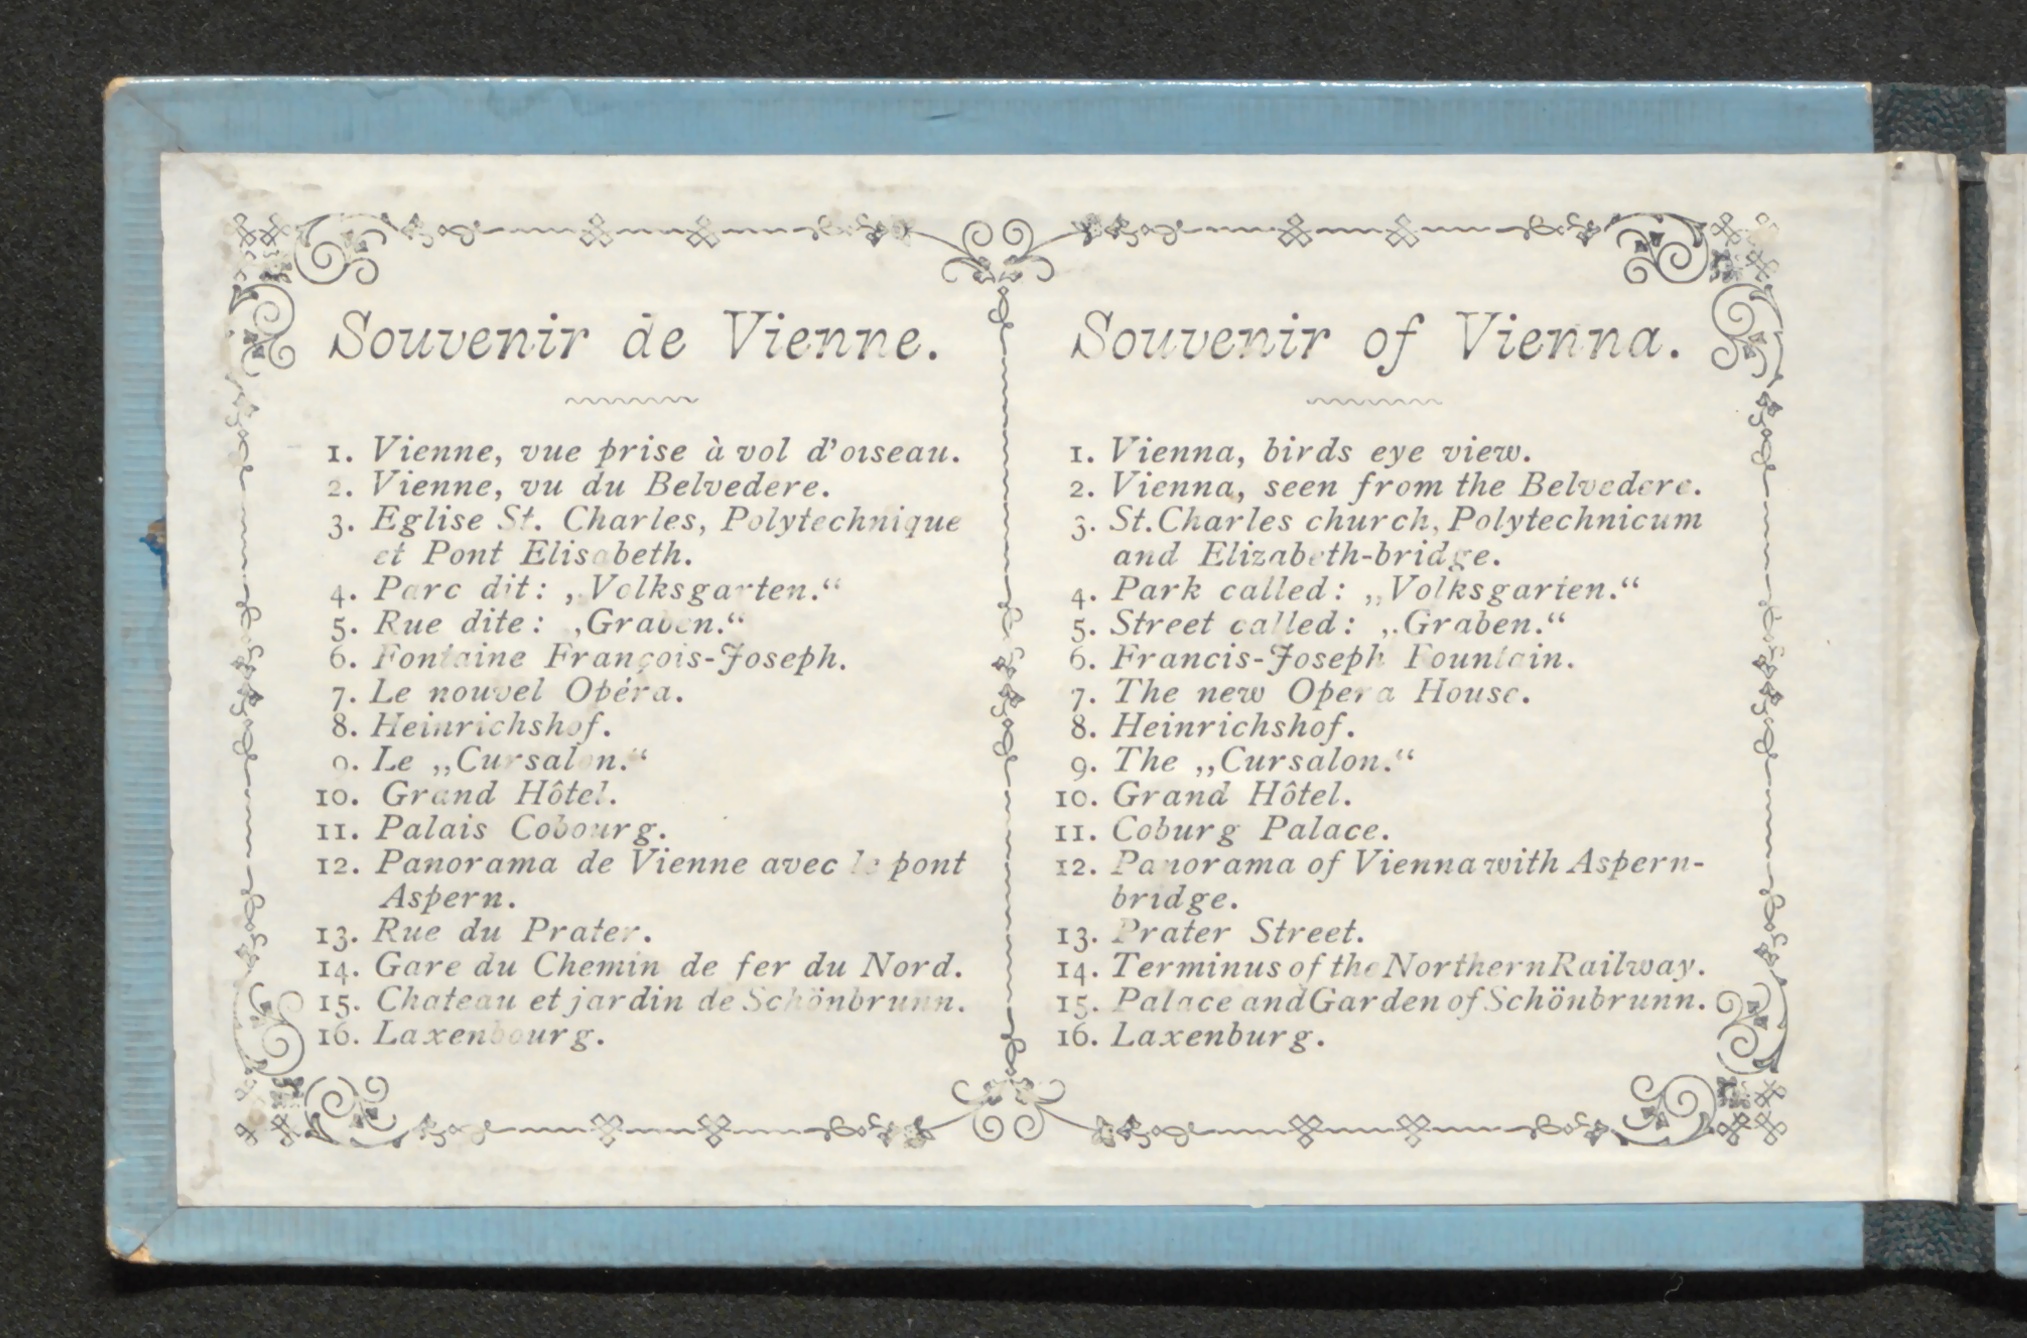 Souvenir de Vienne.
1. Vienne, vue prise à vol d'oiseau.
2. Vienne, vu du Belvedere.
3. Eglise St. Charles, Polytechnique
et Pont Elisabeth.
4. Parc dit: „Volksgarten.“
5. Rue dite: „Graben.“
6. Fontaine François-Joseph.
7. Le nouvel Opéra.
8. Heinrichshof.
9. Le „Cursalon.“
10. Grand Hôtel.
11. Palais Cobourg.
12. Panorama de Vienne avec le pont
Aspern.
13. Rue du Prater.
14. Gare du Chemin de fer du Nord.
15. Chateau et jardin de Schönbrunn.
16. Laxenbourg.
Souvenir of Vienna.
1. Vienna, birds eye view.
2. Vienna, seen from the Belvedere.
3. St. Charles church, Polytechnicum
and Elizabeth-bridge.
4. Park called: „Volksgarten.“
5. Street called: „Graben.“
6. Francis-Joseph Fountain.
7. The new Opera House.
8. Heinrichshof.
9. The „Cursalon.“
10. Grand Hôtel.
11. Coburg Palace.
12. Panorama of Vienna with Aspern-
bridge.
13. Prater Street.
14. Terminus of the Northern Railway.
15. Palace and Garden of Schönbrunn.
16. Laxenburg.